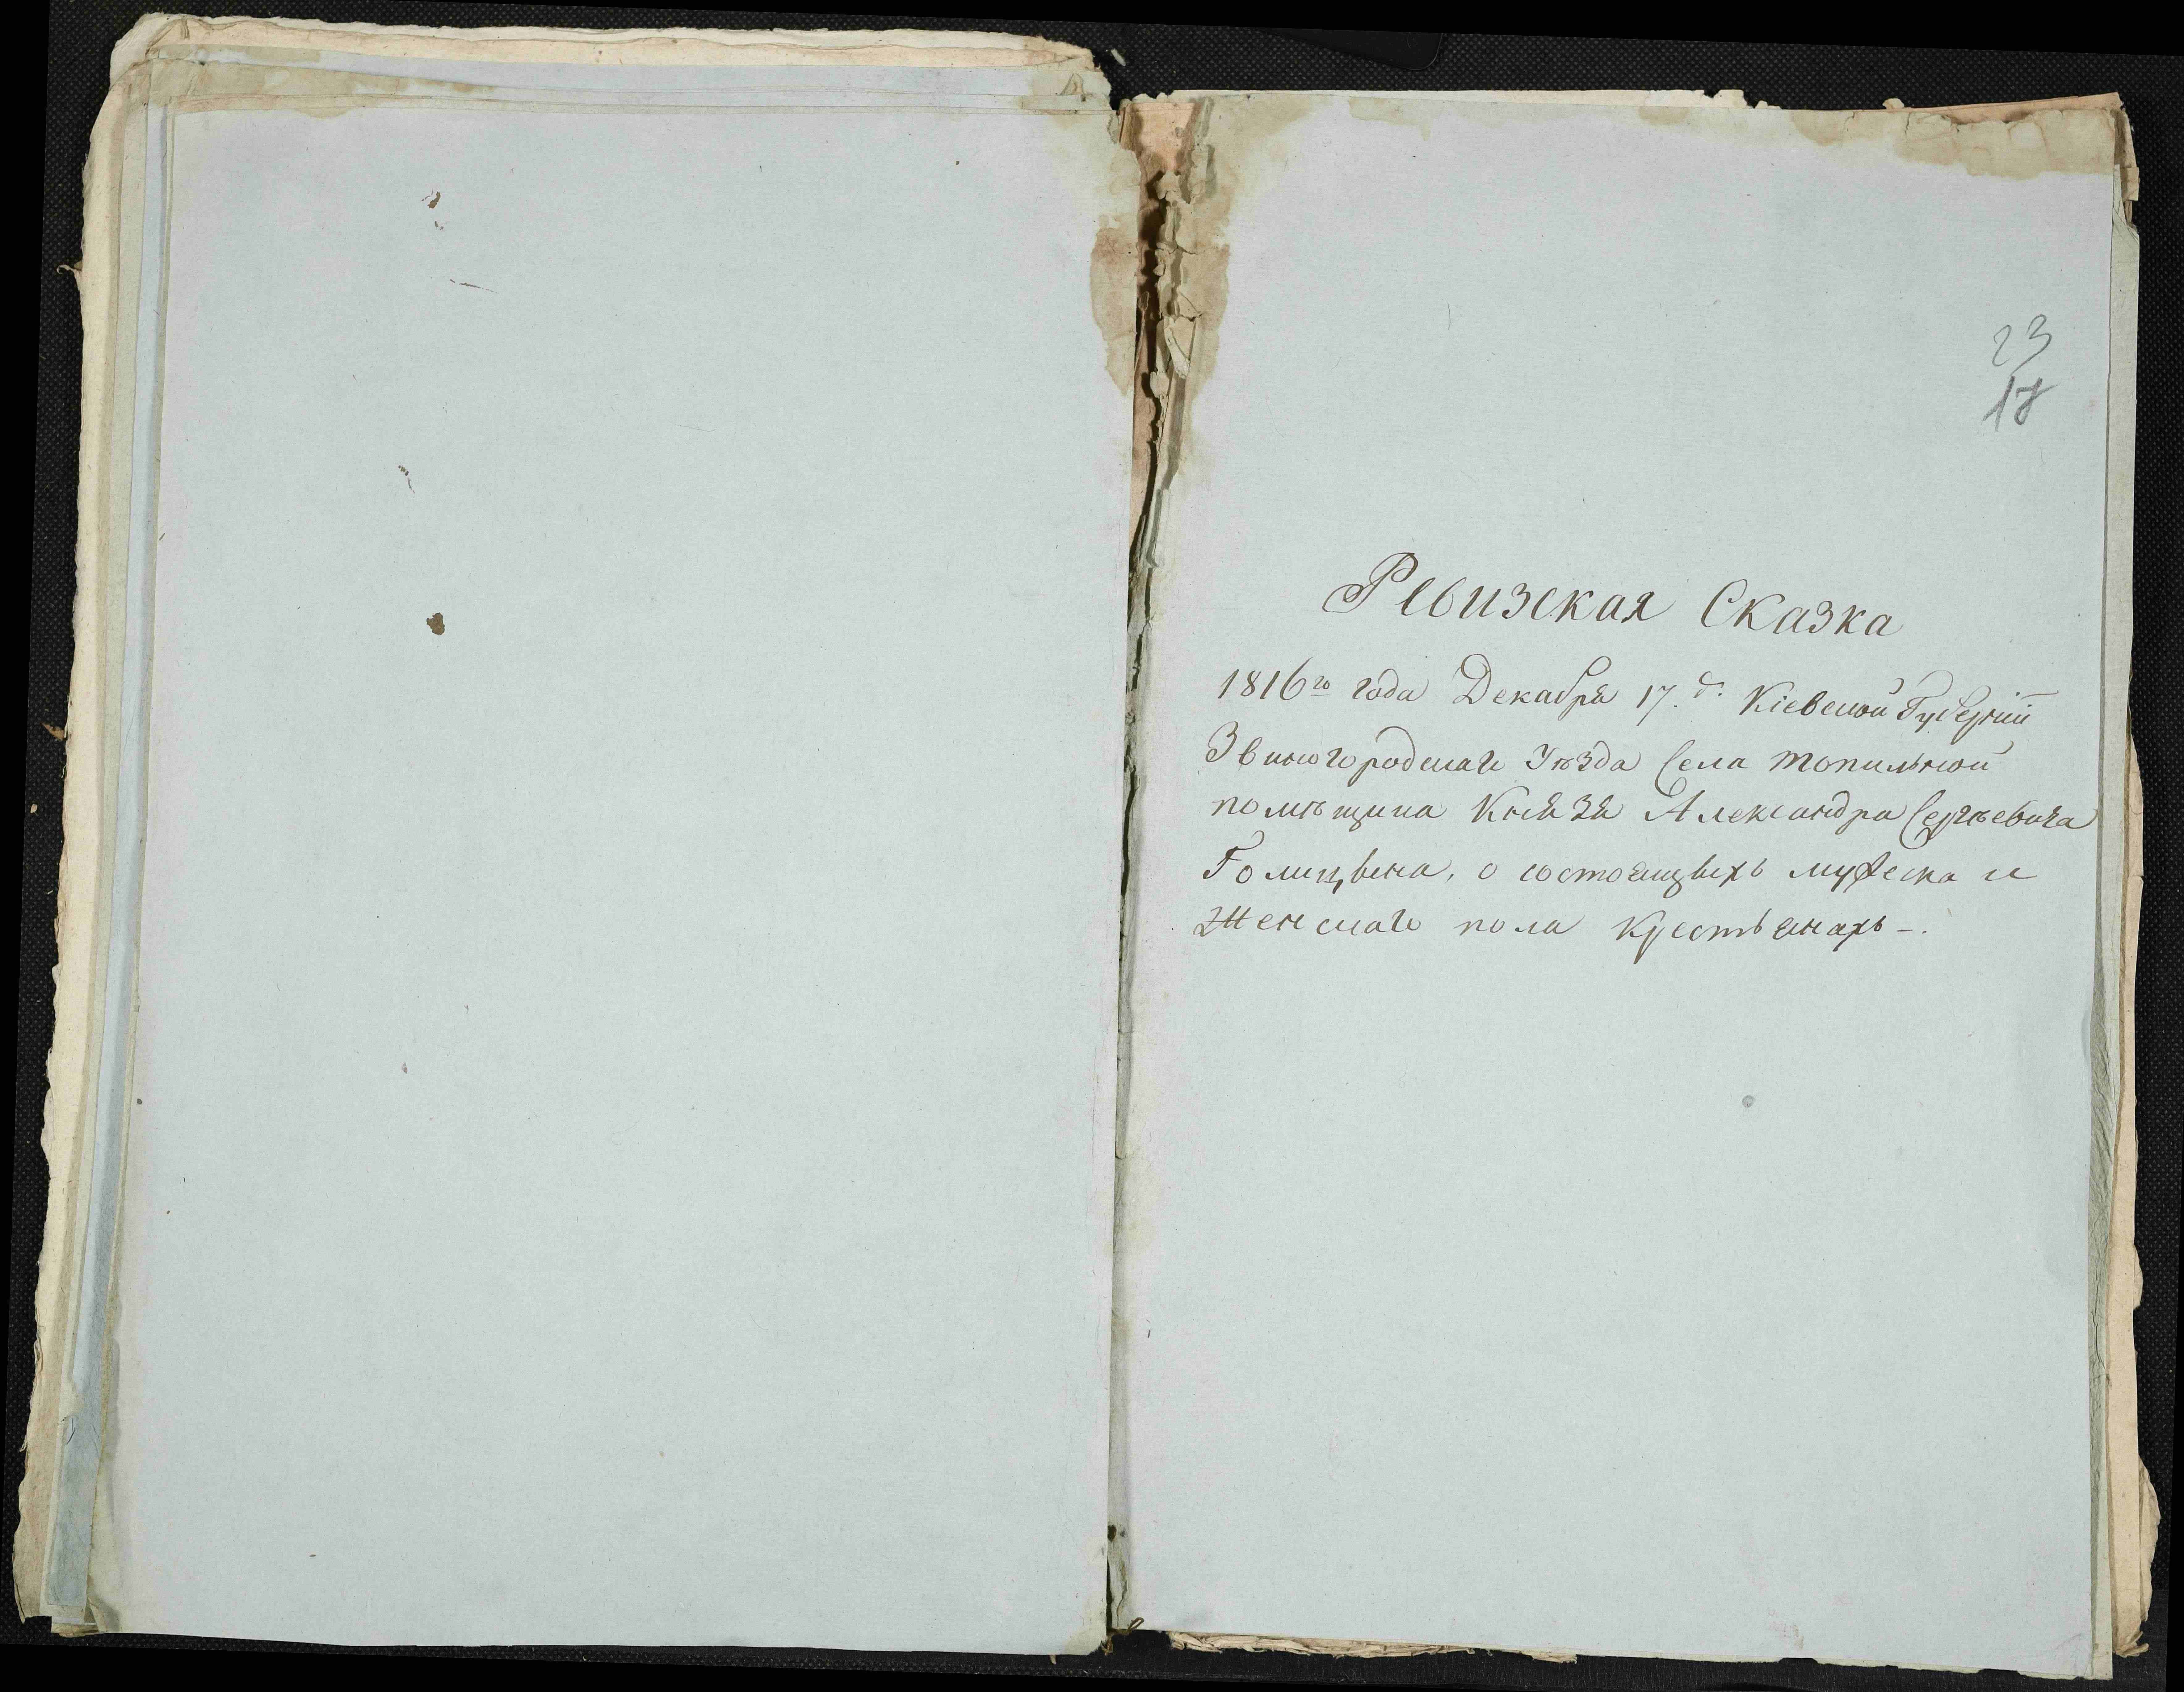 23
18
Ревизская Сказка
1816го года Декабря 17. д. Кіевской Губерніи
Звиногородскаго Уѣзда Села Топильной
помѣщика Князя Александра Сергѣевича
Голицына, о состоящихъ мужеска и
Женскаго пола Крестьянахъ -.